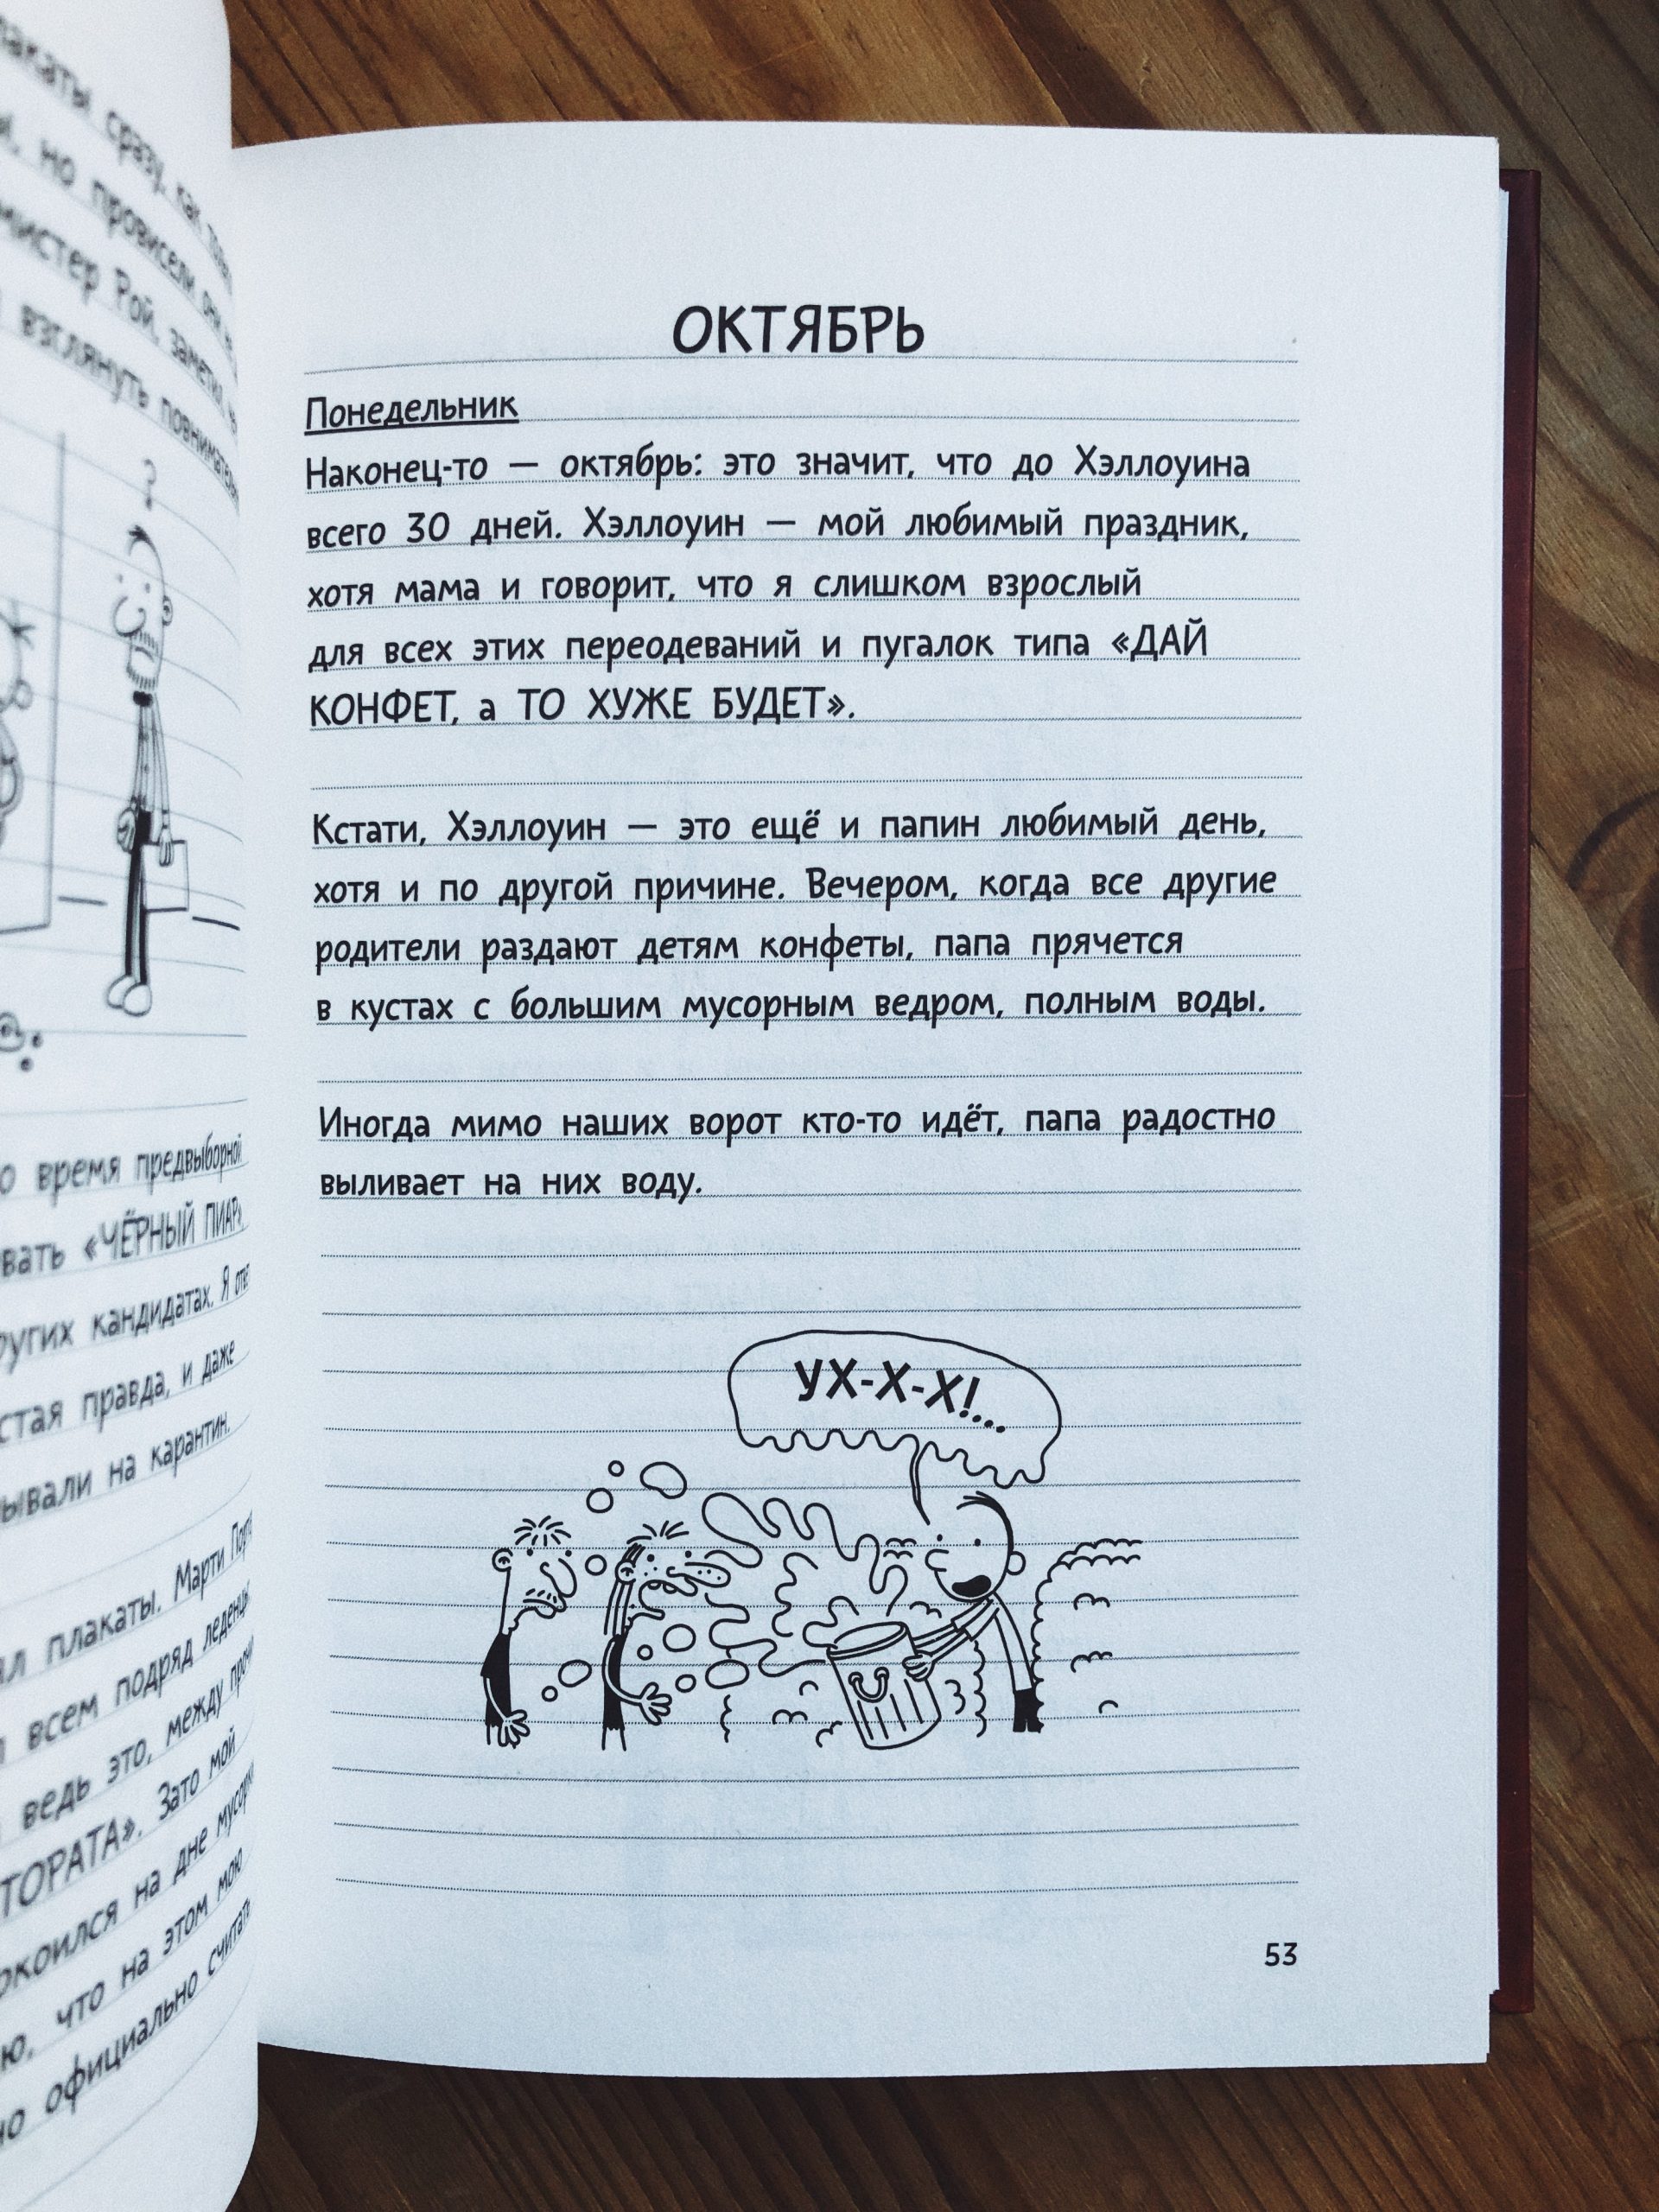 сразу,
но провисели
мистер Рой,
взглянуть
?
время предвыборной
«ЧЁРНЫЙ ПИАР»
кандидатах. Я
правда, и даже
на карантин.
плакаты. Марти
всем подряд леденцы
ведь это, между
Зато мой
на дне
что на этом мою
официально считать
ОКТЯБРЬ
Понедельник
Наконец-то — октябрь: это значит, что до Хэллоуина
всего 30 дней. Хэллоуин — мой любимый праздник,
хотя мама и говорит, что я слишком взрослый
для всех этих переодеваний и пугалок типа «ДАЙ
КОНФЕТ, а ТО ХУЖЕ БУДЕТ».
Кстати, Хэллоуин — это ещё и папин любимый день,
хотя и по другой причине. Вечером, когда все другие
родители раздают детям конфеты, папа прячется
в кустах с большим мусорным ведром, полным воды.
Иногда мимо наших ворот кто-то идёт, папа радостно
выливает на них воду.
УХ-Х-Х!...
53